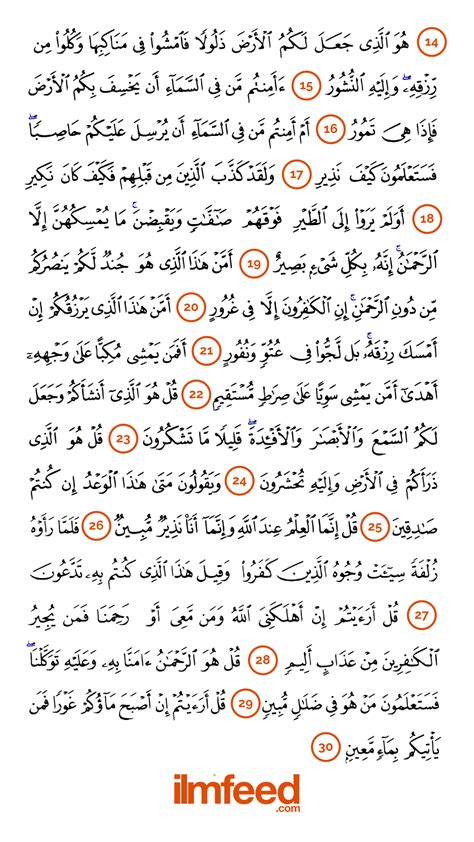 14 هُوَ ٱلَّذِى جَعَلَ لَكُمُ ٱلْأَرْضَ ذَلُولًا فَٱمْشُوا۟ فِى مَنَاكِبِهَا وَكُلُوا۟ مِن
رِّزْقِهِۦ ۖ وَإِلَيْهِ ٱلنُّشُورُ 15 ءَأَمِنتُم مَّن فِى ٱلسَّمَآءِ أَن يَخْسِفَ بِكُمُ ٱلْأَرْضَ
فَإِذَا هِىَ تَمُورُ 16 أَمْ أَمِنتُم مَّن فِى ٱلسَّمَآءِ أَن يُرْسِلَ عَلَيْكُمْ حَاصِبًا ۖ
فَسَتَعْلَمُونَ كَيْفَ نَذِيرِ 17 وَلَقَدْ كَذَّبَ ٱلَّذِينَ مِن قَبْلِهِمْ فَكَيْفَ كَانَ نَكِيرِ
18 أَوَلَمْ يَرَوْا۟ إِلَى ٱلطَّيْرِ فَوْقَهُمْ صَـٰٓفَّـٰتٍ وَيَقْبِضْنَ ۚ مَا يُمْسِكُهُنَّ إِلَّا
ٱلرَّحْمَـٰنُ ۚ إِنَّهُۥ بِكُلِّ شَىْءٍۭ بَصِيرٌ 19 أَمَّنْ هَـٰذَا ٱلَّذِى هُوَ جُندٌ لَّكُمْ يَنصُرُكُم
مِّن دُونِ ٱلرَّحْمَـٰنِ ۚ إِنِ ٱلْكَـٰفِرُونَ إِلَّا فِى غُرُورٍ 20 أَمَّنْ هَـٰذَا ٱلَّذِى يَرْزُقُكُمْ إِنْ
أَمْسَكَ رِزْقَهُۥ ۚ بَل لَّجُّوا۟ فِى عُتُوٍّ وَنُفُورٍ 21 أَفَمَن يَمْشِى مُكِبًّا عَلَىٰ وَجْهِهِۦٓ
أَهْدَىٰٓ أَمَّن يَمْشِى سَوِيًّا عَلَىٰ صِرَٰطٍ مُّسْتَقِيمٍ 22 قُلْ هُوَ ٱلَّذِىٓ أَنشَأَكُمْ وَجَعَلَ
لَكُمُ ٱلسَّمْعَ وَٱلْأَبْصَـٰرَ وَٱلْأَفْـِٔدَةَ ۖ قَلِيلًا مَّا تَشْكُرُونَ 23 قُلْ هُوَ ٱلَّذِى
ذَرَأَكُمْ فِى ٱلْأَرْضِ وَإِلَيْهِ تُحْشَرُونَ 24 وَيَقُولُونَ مَتَىٰ هَـٰذَا ٱلْوَعْدُ إِن كُنتُمْ
صَـٰدِقِينَ 25 قُلْ إِنَّمَا ٱلْعِلْمُ عِندَ ٱللَّهِ وَإِنَّمَآ أَنَا۠ نَذِيرٌ مُّبِينٌ 26 فَلَمَّا رَأَوْهُ
زُلْفَةً سِيٓـَٔتْ وُجُوهُ ٱلَّذِينَ كَفَرُوا۟ وَقِيلَ هَـٰذَا ٱلَّذِى كُنتُم بِهِۦ تَدَّعُونَ
27 قُلْ أَرَءَيْتُمْ إِنْ أَهْلَكَنِىَ ٱللَّهُ وَمَن مَّعِىَ أَوْ رَحِمَنَا فَمَن يُجِيرُ
ٱلْكَـٰفِرِينَ مِنْ عَذَابٍ أَلِيمٍ 28 قُلْ هُوَ ٱلرَّحْمَـٰنُ ءَامَنَّا بِهِۦ وَعَلَيْهِ تَوَكَّلْنَا ۖ
فَسَتَعْلَمُونَ مَنْ هُوَ فِى ضَلَـٰلٍ مُّبِينٍ 29 قُلْ أَرَءَيْتُمْ إِنْ أَصْبَحَ مَآؤُكُمْ غَوْرًا فَمَن
يَأْتِيكُم بِمَآءٍ مَّعِينٍۭ 30
ilmfeed
.com